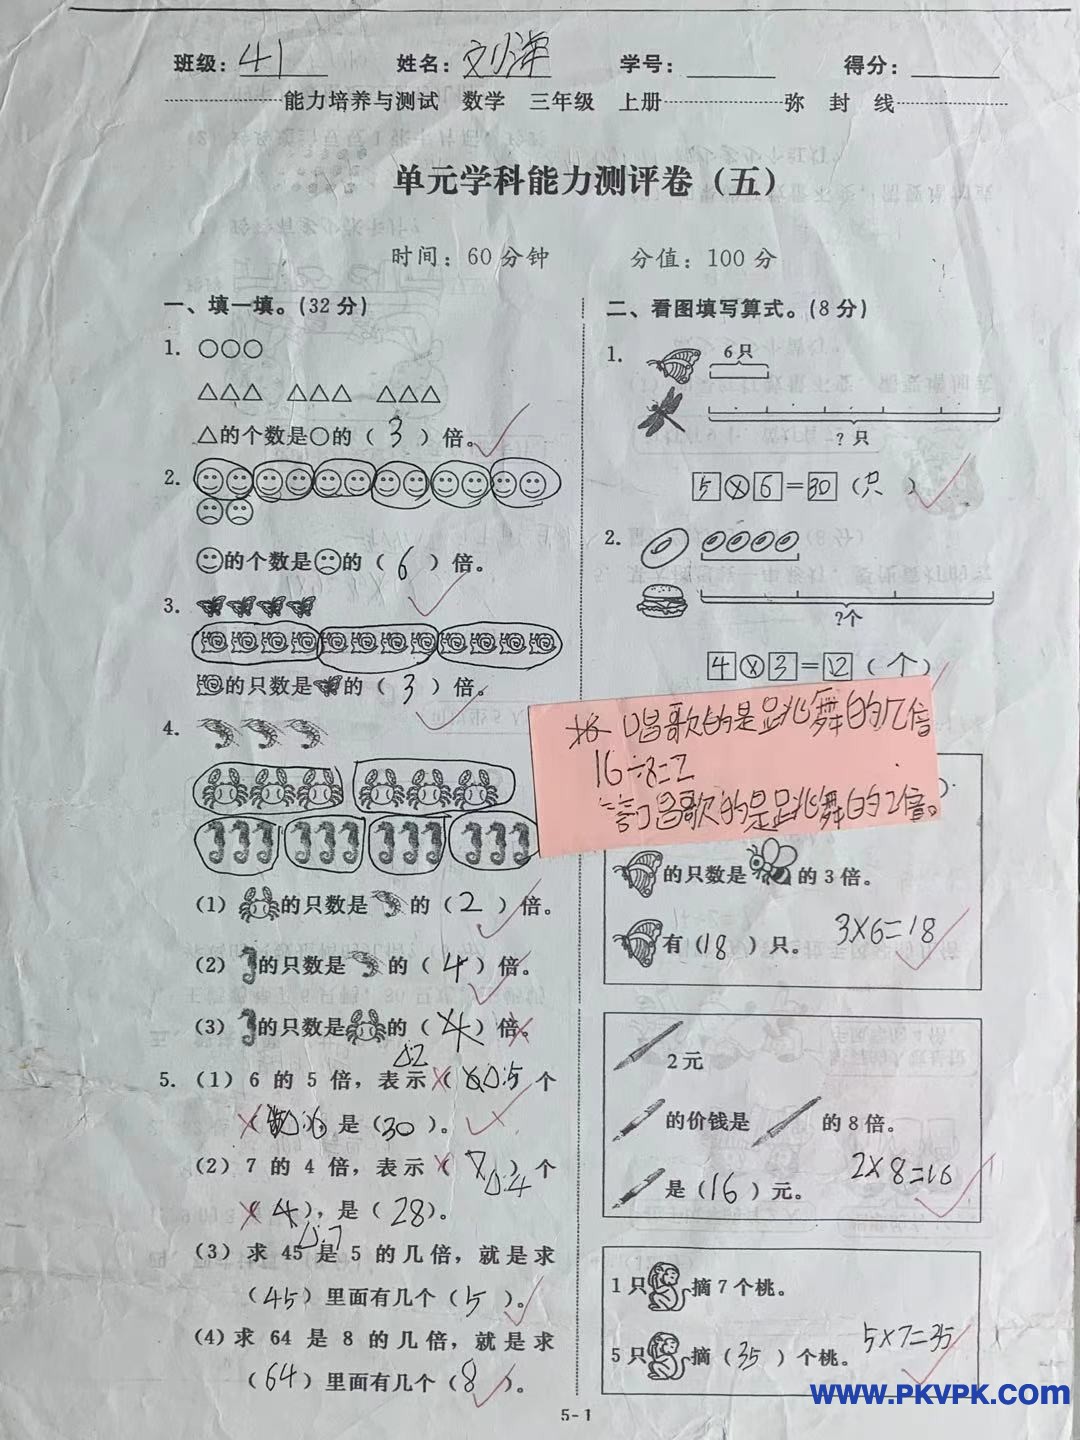 班级：41 姓名：刘洋 学号： 得分：
能力培养与测试 数学 三年级 上册 弥 封 线
单元学科能力测评卷（五）
时间：60分钟 分值：100分
一、填一填。(32分)
1. ○○○
△△△ △△△ △△△
△的个数是○的（3）倍。
2.
的个数是的（6）倍。
3.
的只数是的（3）倍。
4.
(1) 的只数是的（2）倍。
(2) 的只数是的（4）倍。
(3) 的只数是的（4）倍。
△:2
5. (1) 6 的 5 倍，表示（△:5 个
（△:6 是（30）。
(2) 7 的 4 倍，表示（7）个
△:4
（4），是（28）。
△:7
(3) 求 45 是 5 的几倍，就是求
（45）里面有几个（5）。
(4) 求 64 是 8 的几倍，就是求
（64）里面有几个（8）。
二、看图填写算式。(8分)
1. 6只
? 只
5×6=30（只）
2.
?个
4×3=12（个）
唱歌的是跳舞的几倍
16÷8=2
答:唱歌的是跳舞的2倍。
的只数是的3倍。
有（18）只。 3×6=18
2元
的价钱是的8倍。
是（16）元。 2×8=16
1只摘7个桃。
5只摘（35）个桃。 5×7=35
5-1
www.PKVPK.com